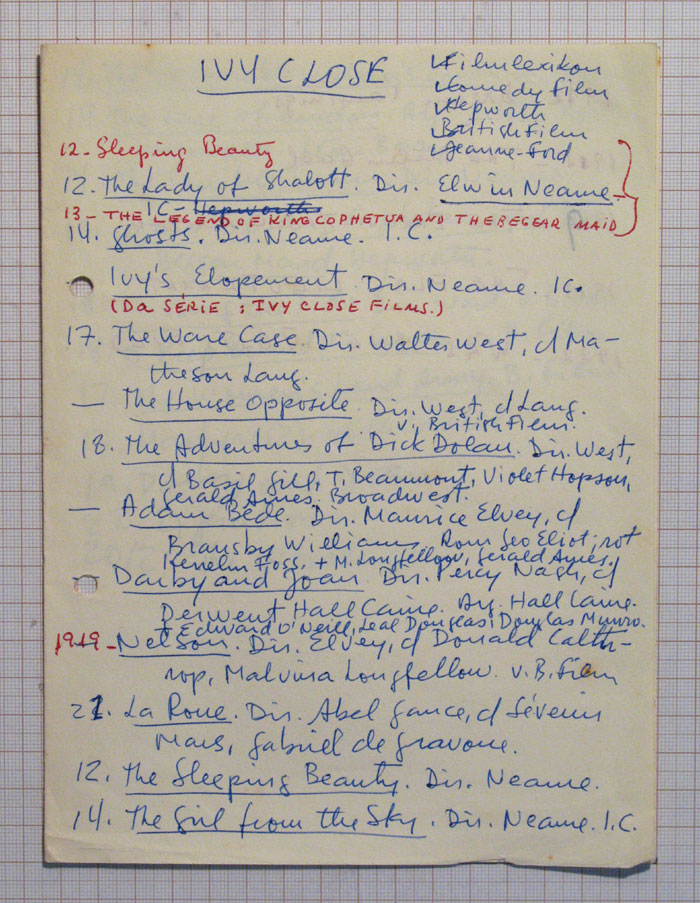 IVY CLOSE
Filmlexikon
Comedy Film
Hepworth
British Film
Jeanne Ford
12 - Sleeping Beauty
12. The Lady of Shalott. Dir. Elwin Neame -
IC - Hepworth
13 - THE LEGEND OF KING COPHETUA AND THE BEGEAR MAID
14. Ghosts. Dir. Neame. I.C.
Ivy's Elopement. Dir. Neame. IC.
(DA SÉRIE : IVY CLOSE FILMS.)
17. The Ware Case. Dir. Walter West, c/ Ma-
theson Lang.
— The House Opposite. Dir. West, c/ Lang.
v. British Film.
18. The Adventures of Dick Dolan. Dir. West,
c/ Basil Gill, T. Beaumont, Violet Hopson,
Gerald Ames. Broadwest.
— Adam Bede. Dir. Maurice Elvey, c/
Bransby Williams. Rom. Geo Eliot; rot
Kenelm Foss. + M. Longfellow, Gerald Ames.
Darby and Joan. Dir. Percy Nash, c/
Derwent Hall Caine. Arg. Hall Caine.
+ Edward O'Neill, Leal Douglas, Douglas Munro.
1919 - Nelson. Dir. Elvey, c/ Donald Calth-
rop, Malvina Longfellow. v. B. Film
21. La Roue. Dir. Abel Gance, c/ Séverin
Mars, Gabriel de Gravone.
12. The Sleeping Beauty. Dir. Neame.
14. The Girl from the Sky. Dir. Neame. I.C.